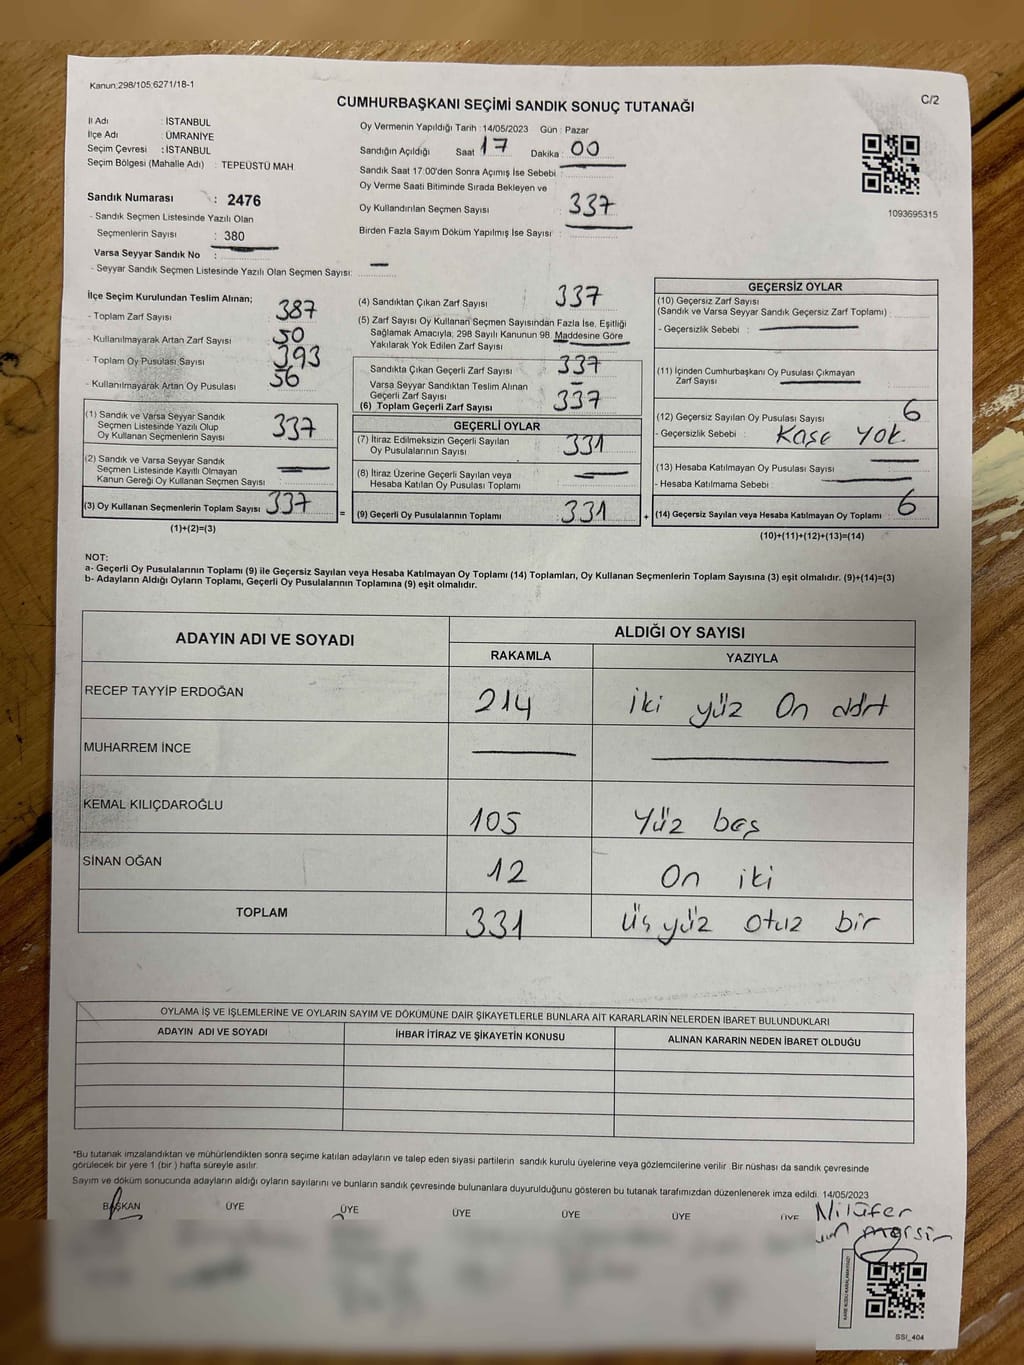 Kanun:298/105:6271/18-1
C/2
CUMHURBAŞKANI SEÇİMİ SANDIK SONUÇ TUTANAĞI
İl Adı : İSTANBUL
İlçe Adı : ÜMRANİYE
Seçim Çevresi : İSTANBUL
Seçim Bölgesi (Mahalle Adı) : TEPEÜSTÜ MAH
Sandık Numarası : 2476
- Sandık Seçmen Listesinde Yazılı Olan
Seçmenlerin Sayısı : 380
Varsa Seyyar Sandık No :
- Seyyar Sandık Seçmen Listesinde Yazılı Olan Seçmen Sayısı: —
Oy Vermenin Yapıldığı Tarih : 14/05/2023 Gün : Pazar
Sandığın Açıldığı Saat 17 Dakika : 00
Sandık Saat 17:00'den Sonra Açımış İse Sebebi :
Oy Verme Saati Bitiminde Sırada Bekleyen ve
Oy Kullandırılan Seçmen Sayısı : 337
Birden Fazla Sayım Döküm Yapılmış İse Sayısı :
1093695315
İlçe Seçim Kurulundan Teslim Alınan;
- Toplam Zarf Sayısı 387
- Kullanılmayarak Artan Zarf Sayısı 50
- Toplam Oy Pusulası Sayısı 393
- Kullanılmayarak Artan Oy Pusulası 56
(1) Sandık ve Varsa Seyyar Sandık
Seçmen Listesinde Yazılı Olup
Oy Kullanan Seçmenlerin Sayısı 337
(2) Sandık ve Varsa Seyyar Sandık
Seçmen Listesinde Kayıtlı Olmayan
Kanun Gereği Oy Kullanan Seçmen Sayısı : —
(3) Oy Kullanan Seçmenlerin Toplam Sayısı 337 =
(1)+(2)=(3)
(4) Sandıktan Çıkan Zarf Sayısı 337
(5) Zarf Sayısı Oy Kullanan Seçmen Sayısından Fazla İse, Eşitliği
Sağlamak Amacıyla; 298 Sayılı Kanunun 98. Maddesine Göre
Yakılarak Yok Edilen Zarf Sayısı
Sandıkta Çıkan Geçerli Zarf Sayısı 337
Varsa Seyyar Sandıktan Teslim Alınan
Geçerli Zarf Sayısı —
(6) Toplam Geçerli Zarf Sayısı 337
GEÇERLİ OYLAR
(7) İtiraz Edilmeksizin Geçerli Sayılan
Oy Pusulalarının Sayısı 331
(8) İtiraz Üzerine Geçerli Sayılan veya
Hesaba Katılan Oy Pusulası Toplamı —
(9) Geçerli Oy Pusulalarının Toplamı 331 +
GEÇERSİZ OYLAR
(10) Geçersiz Zarf Sayısı
(Sandık ve Varsa Seyyar Sandık Geçersiz Zarf Toplamı) :
- Geçersizlik Sebebi : —
(11) İçinden Cumhurbaşkanı Oy Pusulası Çıkmayan
Zarf Sayısı —
(12) Geçersiz Sayılan Oy Pusulası Sayısı 6
- Geçersizlik Sebebi : Kaşe Yok.
(13) Hesaba Katılmayan Oy Pusulası Sayısı —
- Hesaba Katılmama Sebebi : —
(14) Geçersiz Sayılan veya Hesaba Katılmayan Oy Toplamı : 6
(10)+(11)+(12)+(13)=(14)
NOT:
a- Geçerli Oy Pusulalarının Toplamı (9) ile Geçersiz Sayılan veya Hesaba Katılmayan Oy Toplamı (14) Toplamları, Oy Kullanan Seçmenlerin Toplam Sayısına (3) eşit olmalıdır. (9)+(14)=(3)
b- Adayların Aldığı Oyların Toplamı, Geçerli Oy Pusulalarının Toplamına (9) eşit olmalıdır.
ADAYIN ADI VE SOYADI ALDIĞI OY SAYISI
RAKAMLA YAZIYLA
RECEP TAYYİP ERDOĞAN 214 iki yüz On dört
MUHARREM İNCE — —
KEMAL KILIÇDAROĞLU 105 Yüz beş
SİNAN OĞAN 12 On iki
TOPLAM 331 Üç yüz otuz bir
OYLAMA İŞ VE İŞLEMLERİNE VE OYLARIN SAYIM VE DÖKÜMÜNE DAİR ŞİKAYETLERLE BUNLARA AİT KARARLARIN NELERDEN İBARET BULUNDUKLARI
ADAYIN ADI VE SOYADI İHBAR İTİRAZ VE ŞİKAYETİN KONUSU ALINAN KARARIN NEDEN İBARET OLDUĞU
*Bu tutanak imzalandıktan ve mühürlendikten sonra seçime katılan adayların ve talep eden siyasi partilerin sandık kurulu üyelerine veya gözlemcilerine verilir. Bir nüshası da sandık çevresinde
görülecek bir yere 1 (bir ) hafta süreyle asılır.
Sayım ve döküm sonucunda adayların aldığı oyların sayılarını ve bunların sandık çevresinde bulunanlara duyurulduğunu gösteren bu tutanak tarafımızdan düzenlenerek imza edildi. 14/05/2023
BAŞKAN ÜYE ÜYE ÜYE ÜYE ÜYE ÜYE
Nilüfer
SSİ_404